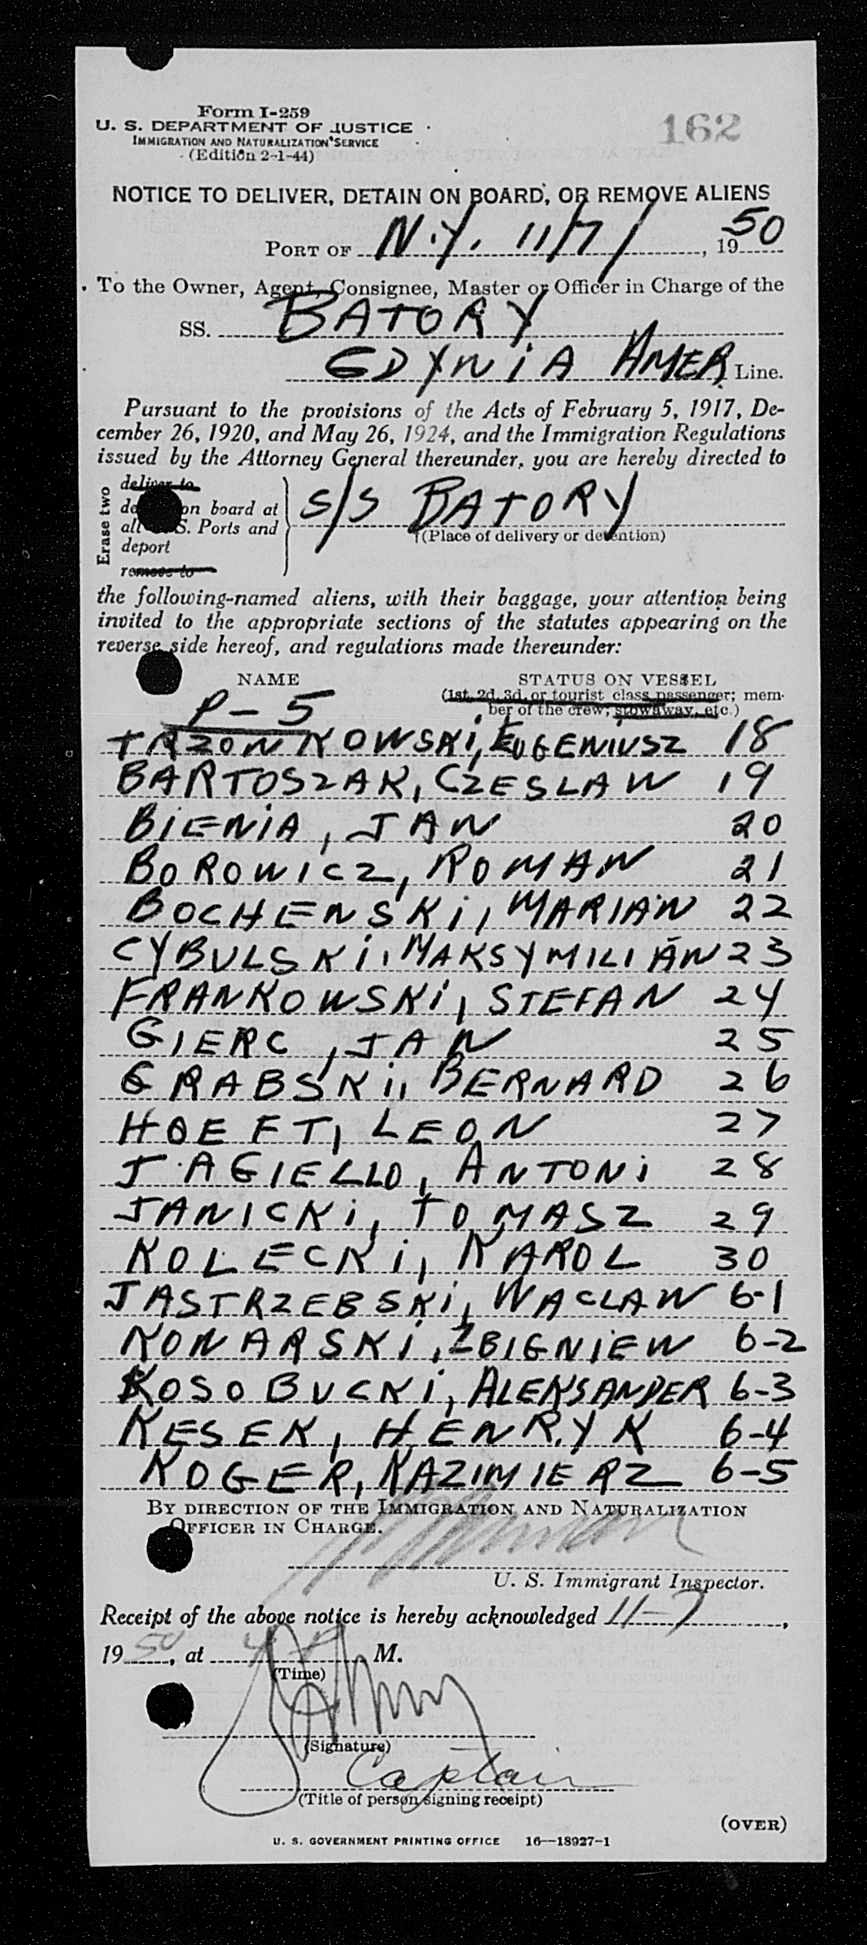 Form I-259
U. S. DEPARTMENT OF JUSTICE
IMMIGRATION AND NATURALIZATION SERVICE
(Edition 2-1-44)
162
NOTICE TO DELIVER, DETAIN ON BOARD, OR REMOVE ALIENS
PORT OF N.Y. 11/7/, 1950
To the Owner, Agent, Consignee, Master or Officer in Charge of the
SS. BATORY
GDYNIA AMER Line.
Pursuant to the provisions of the Acts of February 5, 1917, De-
cember 26, 1920, and May 26, 1924, and the Immigration Regulations
issued by the Attorney General thereunder, you are hereby directed to
Erase two
deliver to
on board at
all S. Ports and
deport
remove to
S/S BATORY
(Place of delivery or detention)
the following-named aliens, with their baggage, your attention being
invited to the appropriate sections of the statutes appearing on the
reverse side hereof, and regulations made thereunder:
NAME STATUS ON VESSEL
(1st, 2d, 3d, or tourist class passenger; mem-
ber of the crew; stowaway, etc.)
P-5
TRZONKOWSKI, EUGENIUSZ 18
BARTOSZAK, CZESLAW 19
BIENIA, JAN 20
BOROWICZ, ROMAN 21
BOCHENSKI, MARIAN 22
CYBULSKI, MAKSYMILIAN 23
FRANKOWSKI, STEFAN 24
GIERC, JAN 25
GRABSKI, BERNARD 26
HOEFT, LEON 27
JAGIELLO, ANTONI 28
JANICKI, TOMASZ 29
KOLECKI, KAROL 30
JASTRZEBSKI, WACLAW 6-1
KONARSKI, ZBIGNIEW 6-2
KOSOBUCKI, ALEKSANDER 6-3
KESEK, HENRYK 6-4
KOGER, KAZIMIERZ 6-5
BY DIRECTION OF THE IMMIGRATION AND NATURALIZATION
OFFICER IN CHARGE.
U. S. Immigrant Inspector.
Receipt of the above notice is hereby acknowledged 11-7,
1950, at 4 P M.
(Time)
(Signature)
Captain
(Title of person signing receipt)
(OVER)
U. S. GOVERNMENT PRINTING OFFICE 16—18927-1